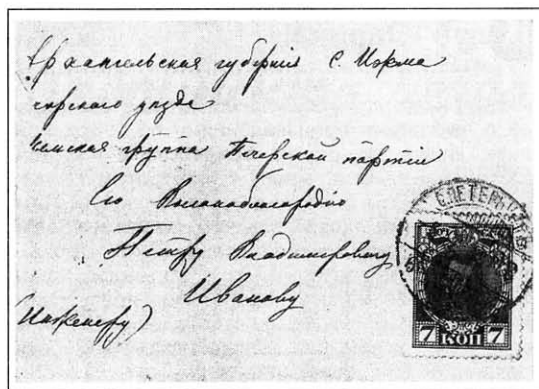 Архангельская губернія с. Ижма
уѣзда
группа Печерской партіи
Его Высокоблагородію
Петру Владимировичу
Иванову
(Инженеру)
С.ПЕТЕРБУРГЪ
7 КОП 7